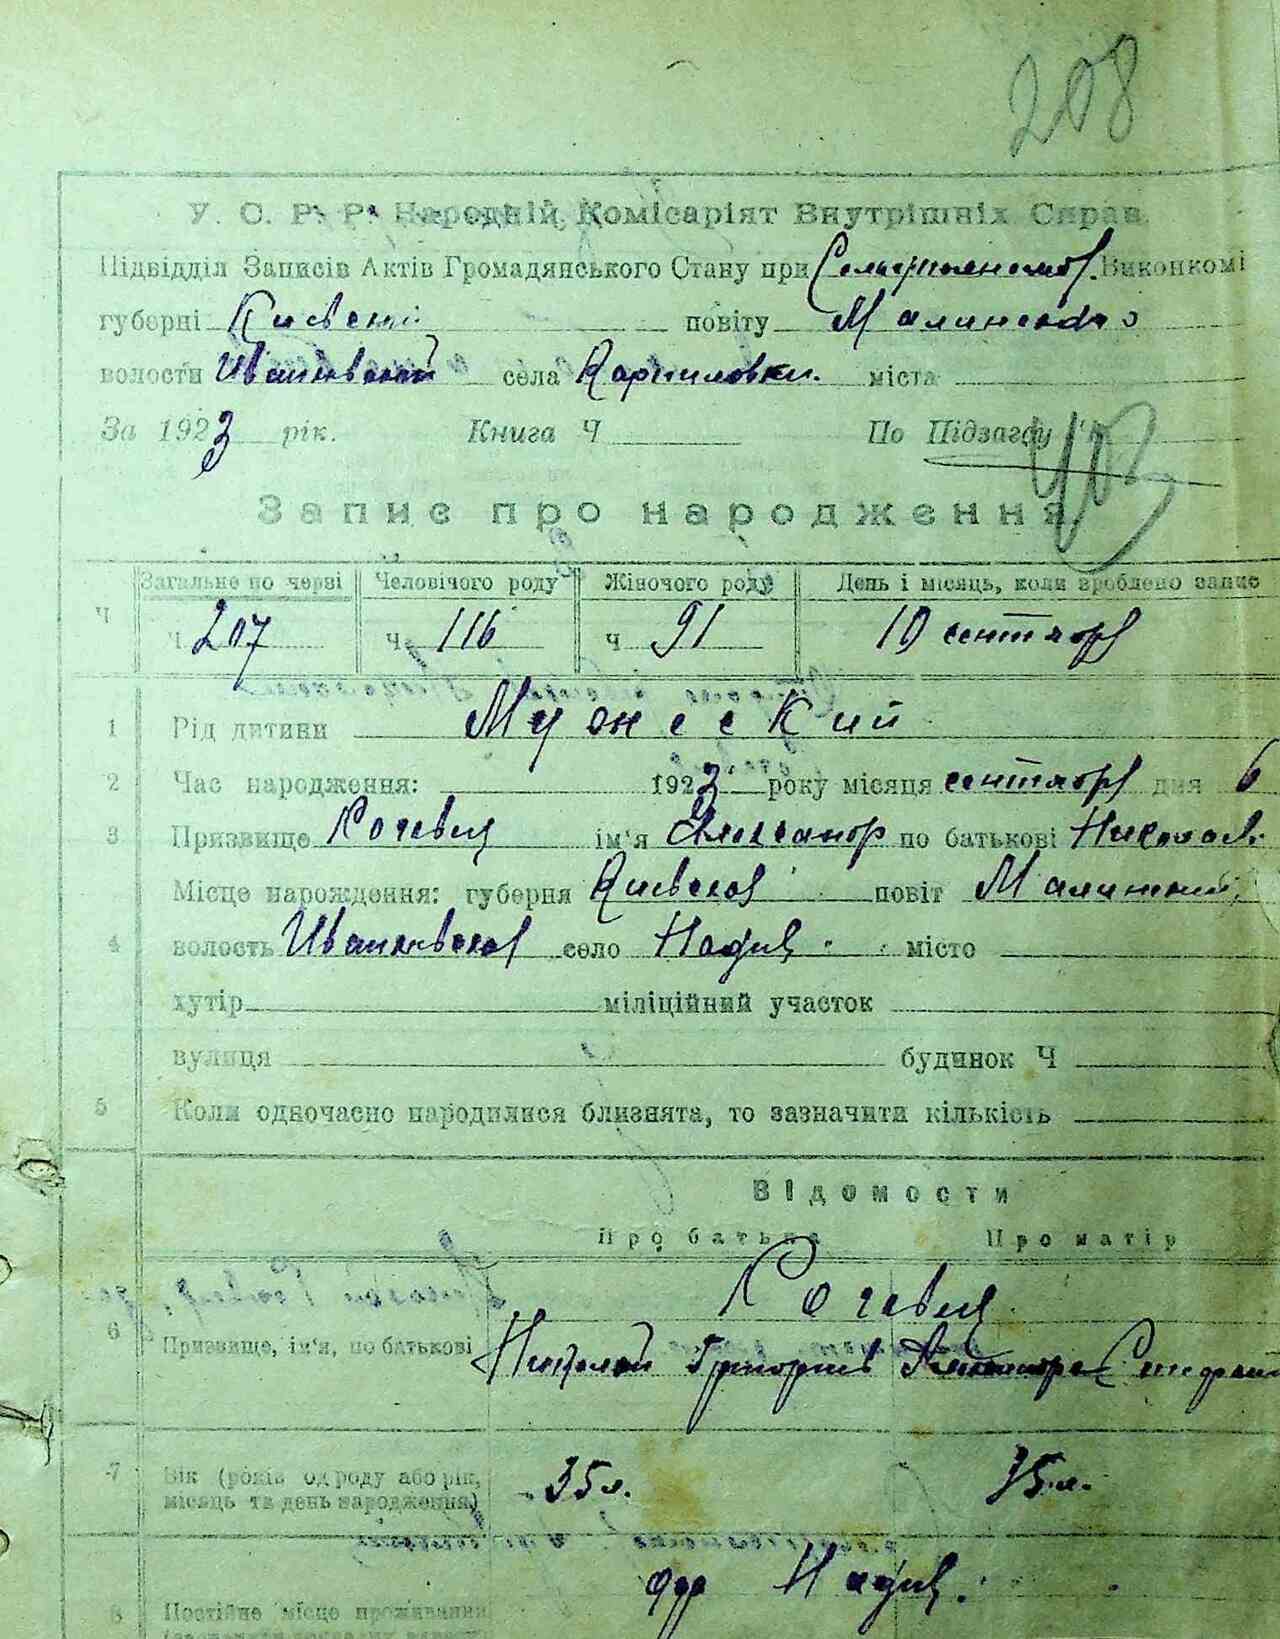 208
У. С. Р. Р. Народній Комісаріят Внутрішніх Справ
Підвідділ Записів Актів Громадянського Стану при Виконкомі
губерні Киевской повіту Малинского
волости Иванковской села Карпиловки. міста
За 1923 рік. Книга Ч По Підзагсу
Запис про народження
Загальне по черзі Человічого роду Жіночого роду День і місяць, коли зроблено запис
Ч Ч 207 Ч 116 Ч 91 10 сентября
1 Рід дитини Мужесский
2 Час народження: 1923 року місяця сентября дня 6
3 Призвище ім'я Александр по батькові Николаев
Місце нарождення: губерня Киевской повіт Малинский
4 волость Иванковской село місто
хутір міліційний участок
вулиця будинок Ч
5 Коли одночасно народилися близнята, то зазначити кількість
Відомости
Про батька Про матір
6 Призвище, ім'я, по батькові Николай Григориев
7 Вік (років од роду або рік, 35 л. 35 л.
місяць та день народження)
8 Постійне місце проживання